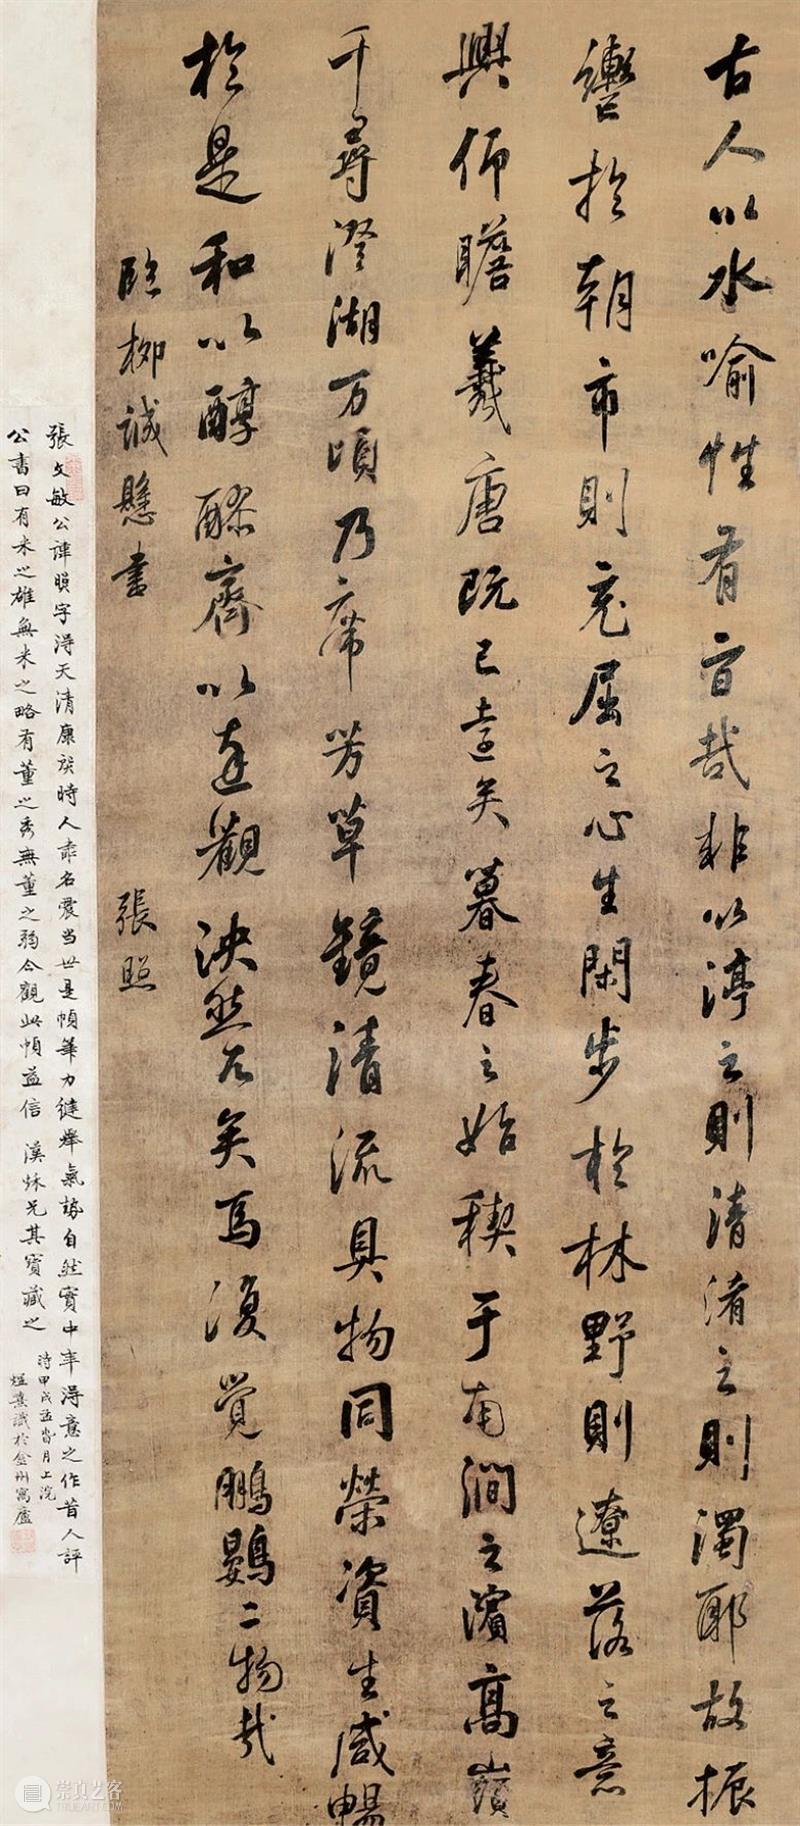 古人以水喻性有旨哉非以渟之則清淆之則濁耶故振
轡於朝市則充屈之心生閑步於林野則遼落之意
興仰瞻羲唐既已遠矣暮春之始稧于南澗之濱高嶺
千尋澄湖万頃乃席芳草鏡清流具物同榮資生咸暢
於是和以醇醪齊以達觀泱然兀矣焉復覺鵬鷃二物哉
臨柳誠懸書 張照
張文敏公諱照字得天清康熙時人書名震当世是幀筆力健舉氣勢自然實中年得意之作昔人評
公書曰有米之雄無米之略有董之秀無董之弱今觀此幀益信 漢秋兄其寶藏之
時甲戌月上浣
識於金州寓廬
崇真艺客